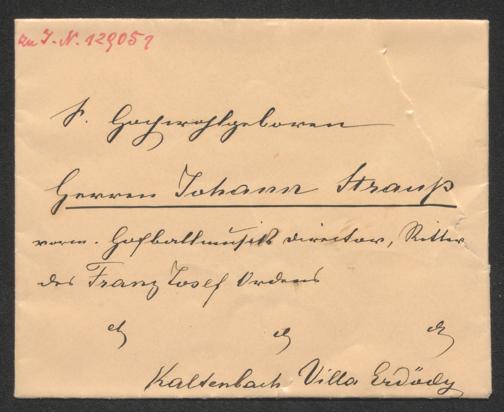 zu I.N. 129051
S. Hochwohlgeboren
Herren Johann Strauß
vorm. Hofballmusik director, Ritter
des Franz Josef Ordens
etz etz etz
Kaltenbach Villa Erdödy